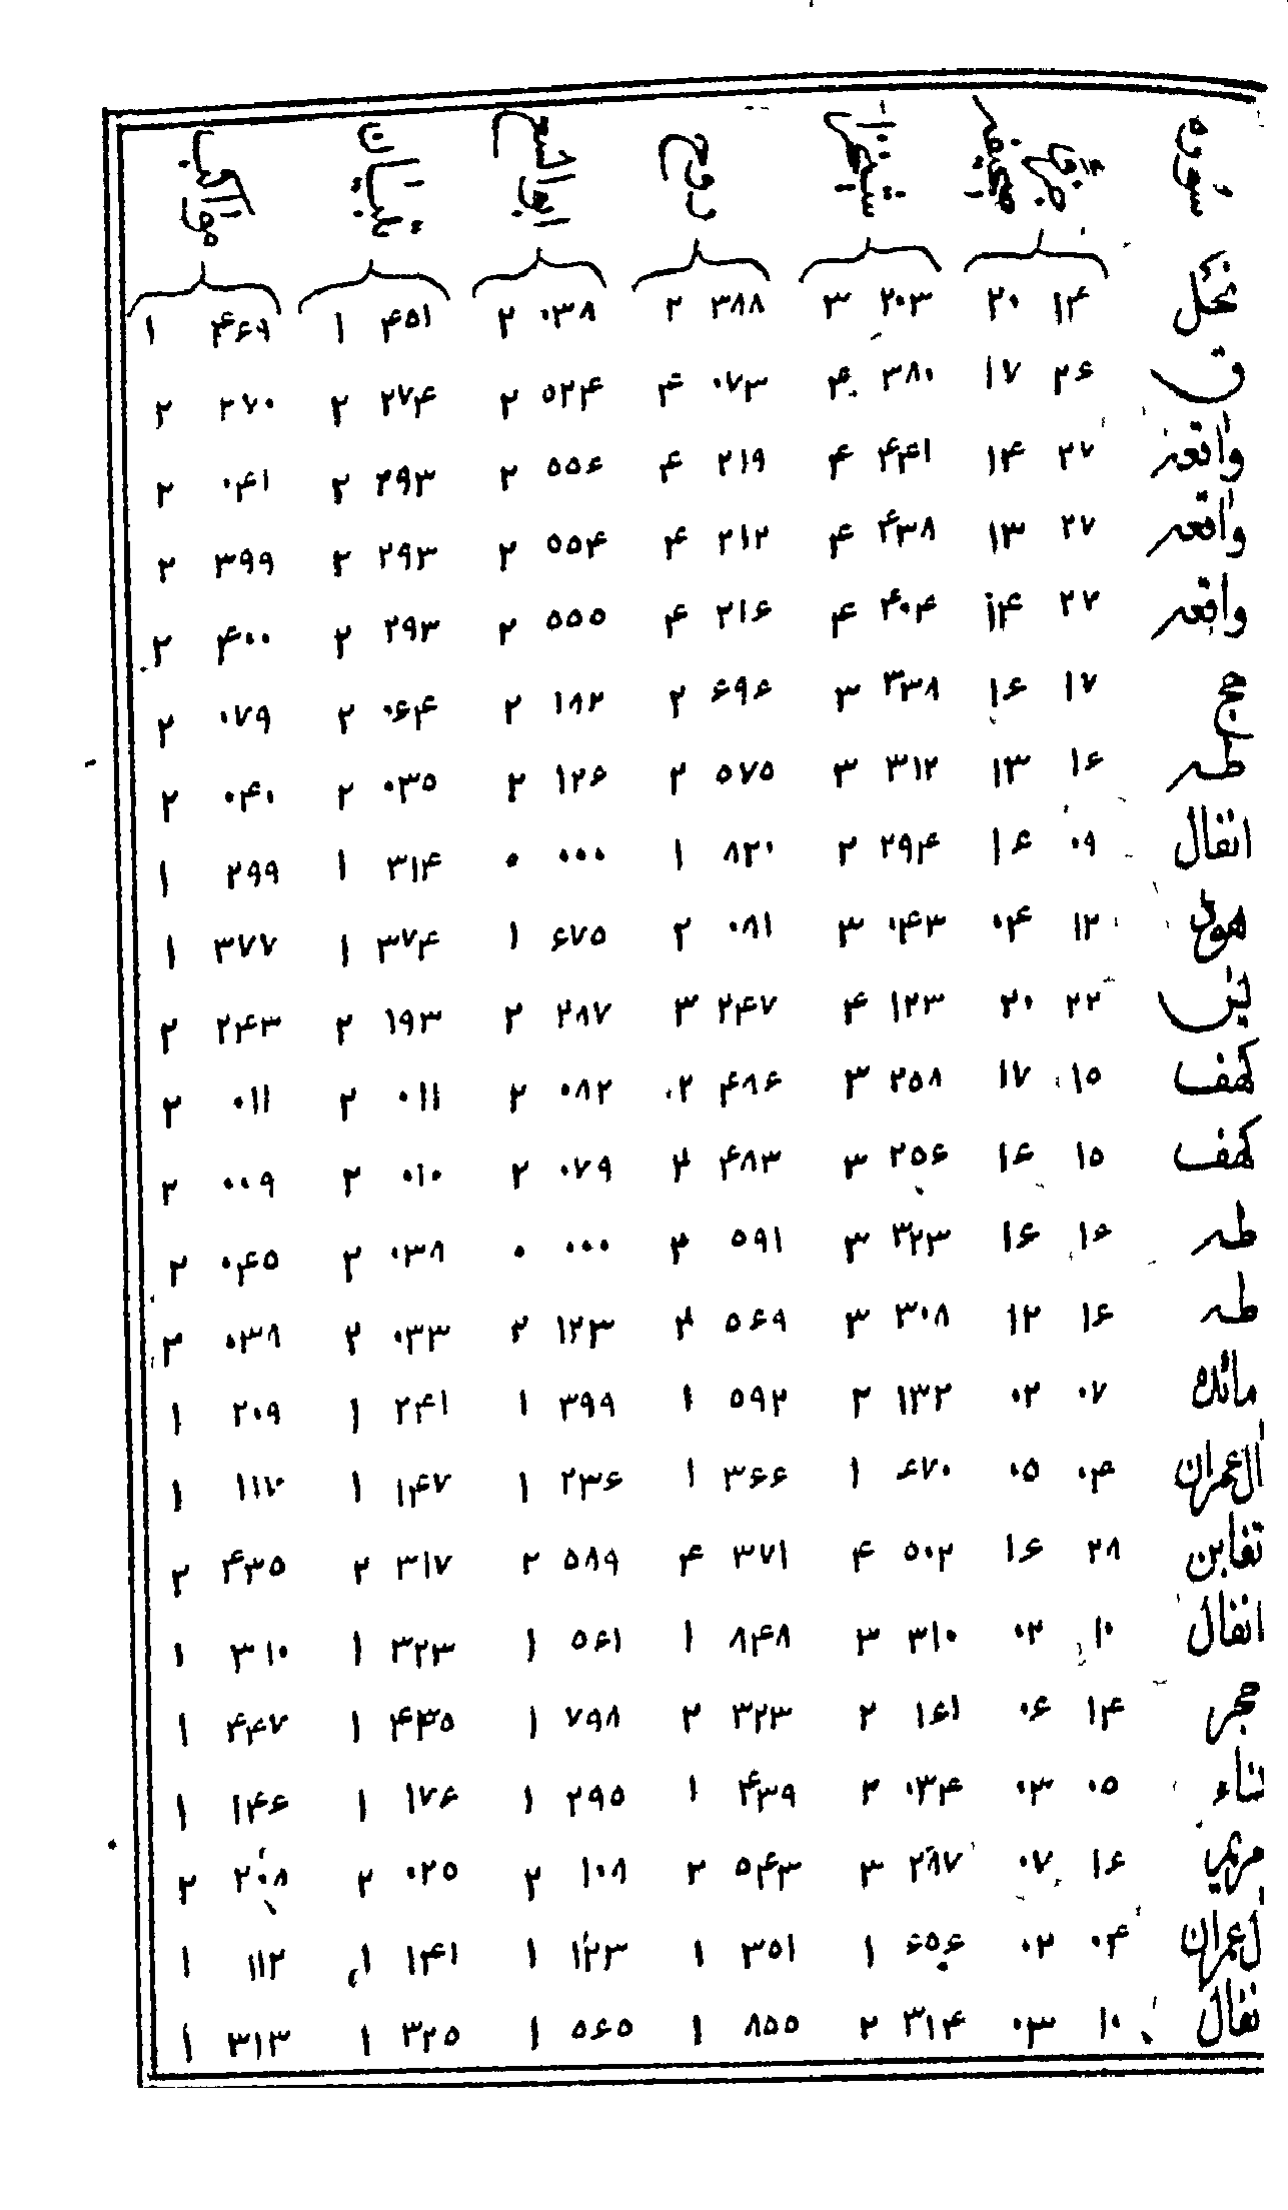 سوره صحیفه شیخزاده روح ابو السعود تبیان مواکب
نحل ۱۴ ۲۰ ۲۰۳ ۳ ۳۸۸ ۲ ۰۳۸ ۲ ۴۵۱ ۱ ۴۶۹ ۱
ق ۲۶ ۱۷ ۳۸۰ ۴ ۰۷۳ ۴ ۵۲۴ ۲ ۲۷۴ ۲ ۲۷۰ ۲
واقعه ۲۷ ۱۴ ۴۴۱ ۴ ۲۱۹ ۴ ۵۵۶ ۲ ۲۹۳ ۲ ۰۴۱ ۲
واقعه ۲۷ ۱۳ ۴۳۸ ۴ ۲۱۲ ۴ ۵۵۴ ۲ ۲۹۳ ۲ ۳۹۹ ۲
واقعه ۲۷ ۱۴ ۴۰۴ ۴ ۲۱۶ ۴ ۵۵۵ ۲ ۲۹۳ ۲ ۴۰۰ ۲
حج ۱۷ ۱۶ ۳۳۸ ۳ ۶۹۶ ۲ ۱۸۲ ۲ ۰۶۴ ۲ ۰۷۹ ۲
طه ۱۶ ۱۳ ۳۱۲ ۳ ۵۷۵ ۲ ۱۲۶ ۲ ۰۳۵ ۲ ۰۴۰ ۲
انفال ۰۹ ۱۶ ۲۹۴ ۲ ۸۲۰ ۱ ۰۰۰ ۰ ۳۱۴ ۱ ۲۹۹ ۱
هود ۱۲ ۰۴ ۰۴۳ ۳ ۰۸۱ ۲ ۶۷۵ ۱ ۳۷۴ ۱ ۳۷۷ ۱
یس ۲۲ ۲۰ ۱۲۳ ۴ ۲۴۷ ۳ ۲۸۷ ۲ ۱۹۳ ۲ ۲۴۳ ۲
کهف ۱۵ ۱۷ ۲۵۸ ۳ ۴۸۶ ۲ ۰۸۲ ۲ ۰۱۱ ۲ ۰۱۱ ۲
کهف ۱۵ ۱۶ ۲۵۶ ۳ ۴۸۳ ۲ ۰۷۹ ۲ ۰۱۰ ۲ ۰۰۹ ۲
طه ۱۶ ۱۶ ۳۲۳ ۳ ۵۹۱ ۲ ۰۰۰ ۰ ۰۳۸ ۲ ۰۴۵ ۲
طه ۱۶ ۱۲ ۳۰۸ ۳ ۵۶۹ ۲ ۱۲۳ ۲ ۰۳۳ ۲ ۰۳۸ ۲
مائده ۰۷ ۰۲ ۱۳۲ ۲ ۵۹۲ ۱ ۳۹۹ ۱ ۲۴۱ ۱ ۲۰۹ ۱
ال عمران ۰۴ ۰۵ ۶۷۰ ۱ ۳۶۶ ۱ ۲۳۶ ۱ ۱۴۷ ۱ ۱۱۷ ۱
تغابن ۲۸ ۱۶ ۵۰۲ ۴ ۳۷۱ ۴ ۵۸۹ ۲ ۳۱۷ ۲ ۴۳۵ ۲
انفال ۱۰ ۰۲ ۳۱۰ ۳ ۸۴۸ ۱ ۵۶۱ ۱ ۳۲۳ ۱ ۳۱۰ ۱
حجر ۱۴ ۰۶ ۱۶۱ ۲ ۳۲۳ ۲ ۷۹۸ ۱ ۴۳۵ ۱ ۴۴۷ ۱
نساء ۰۵ ۰۳ ۰۳۴ ۲ ۴۳۹ ۱ ۲۹۵ ۱ ۱۷۶ ۱ ۱۴۶ ۱
مریم ۱۶ ۰۷ ۲۸۷ ۳ ۵۴۳ ۲ ۱۰۸ ۲ ۰۲۵ ۲ ۲۰۸ ۲
ل عمران ۰۴ ۰۲ ۶۵۶ ۱ ۳۵۱ ۱ ۱۲۳ ۱ ۱۴۱ ۱ ۱۱۲ ۱
نفال ۱۰ ۰۳ ۳۱۴ ۲ ۸۵۵ ۱ ۵۶۵ ۱ ۳۲۵ ۱ ۳۱۳ ۱